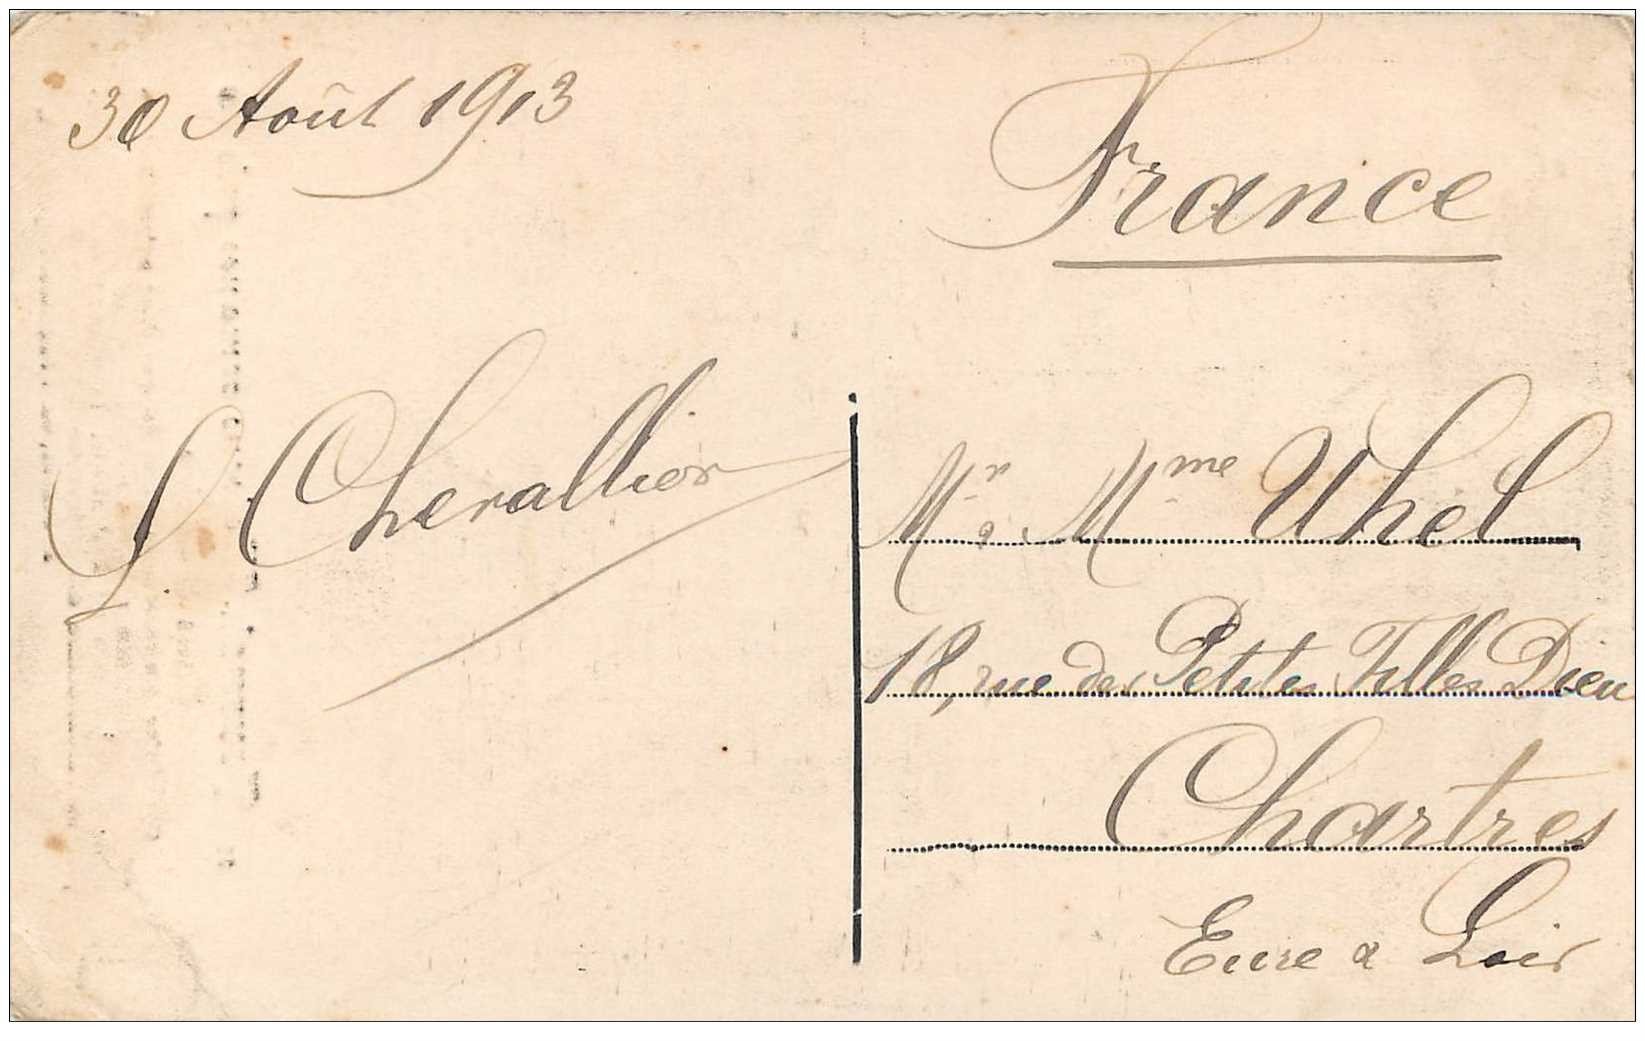 30 Août 1913
L. Chevallier
France
Mr & Mme Uhel
18, rue des Petites Filles Dieu
Chartres
Eure & Loir